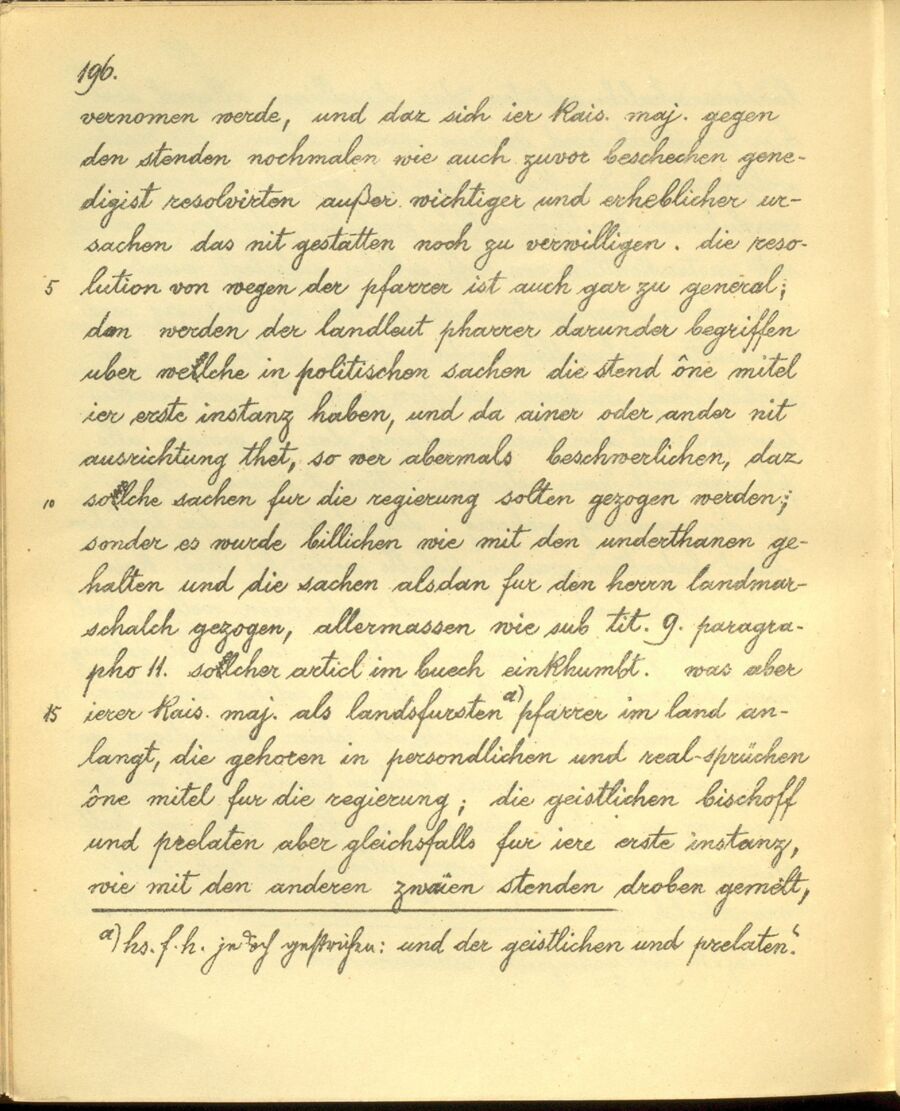 196.
vernomen werde, und daz sich ier Kais. maj. gegen
den stenden nochmalen wie auch zuvor beschechen gene-
digist resolvirten außer wichtiger und erheblicher ur-
sachen das nit gestatten noch zu verwilligen. die reso-
5 lution von wegen der pfarrer ist auch gar zu general;
dan werden der landleut pharrer darunder begriffen
uber welche in politischen sachen die stend ône mitel
ier erste instanz haben, und da ainer oder ander nit
ausrichtung thet, so wer abermals beschwerlichen, daz
10 solche sachen fur die regierung solten gezogen werden;
sonder es wurde billichen wie mit den underthanen ge-
halten und die sachen alsdan fur den herrn landmar-
schalch gezogen, allermassen wie sub tit. 9. paragra-
pho 11. solcher articl im buech einkhumbt. was aber
15 ierer Kais. maj. als landsfursten a) pfarrer im land an-
langt, die gehoren in persondlichen und real-sprüchen
ône mitel fur die regierung; die geistlichen bischoff
und prelaten aber gleichsfalls fur iere erste instanz,
wie mit den anderen zwaien stenden droben gemelt,
a) hs. f. h. jedoch gestrichen: und der geistlichen und prelaten.